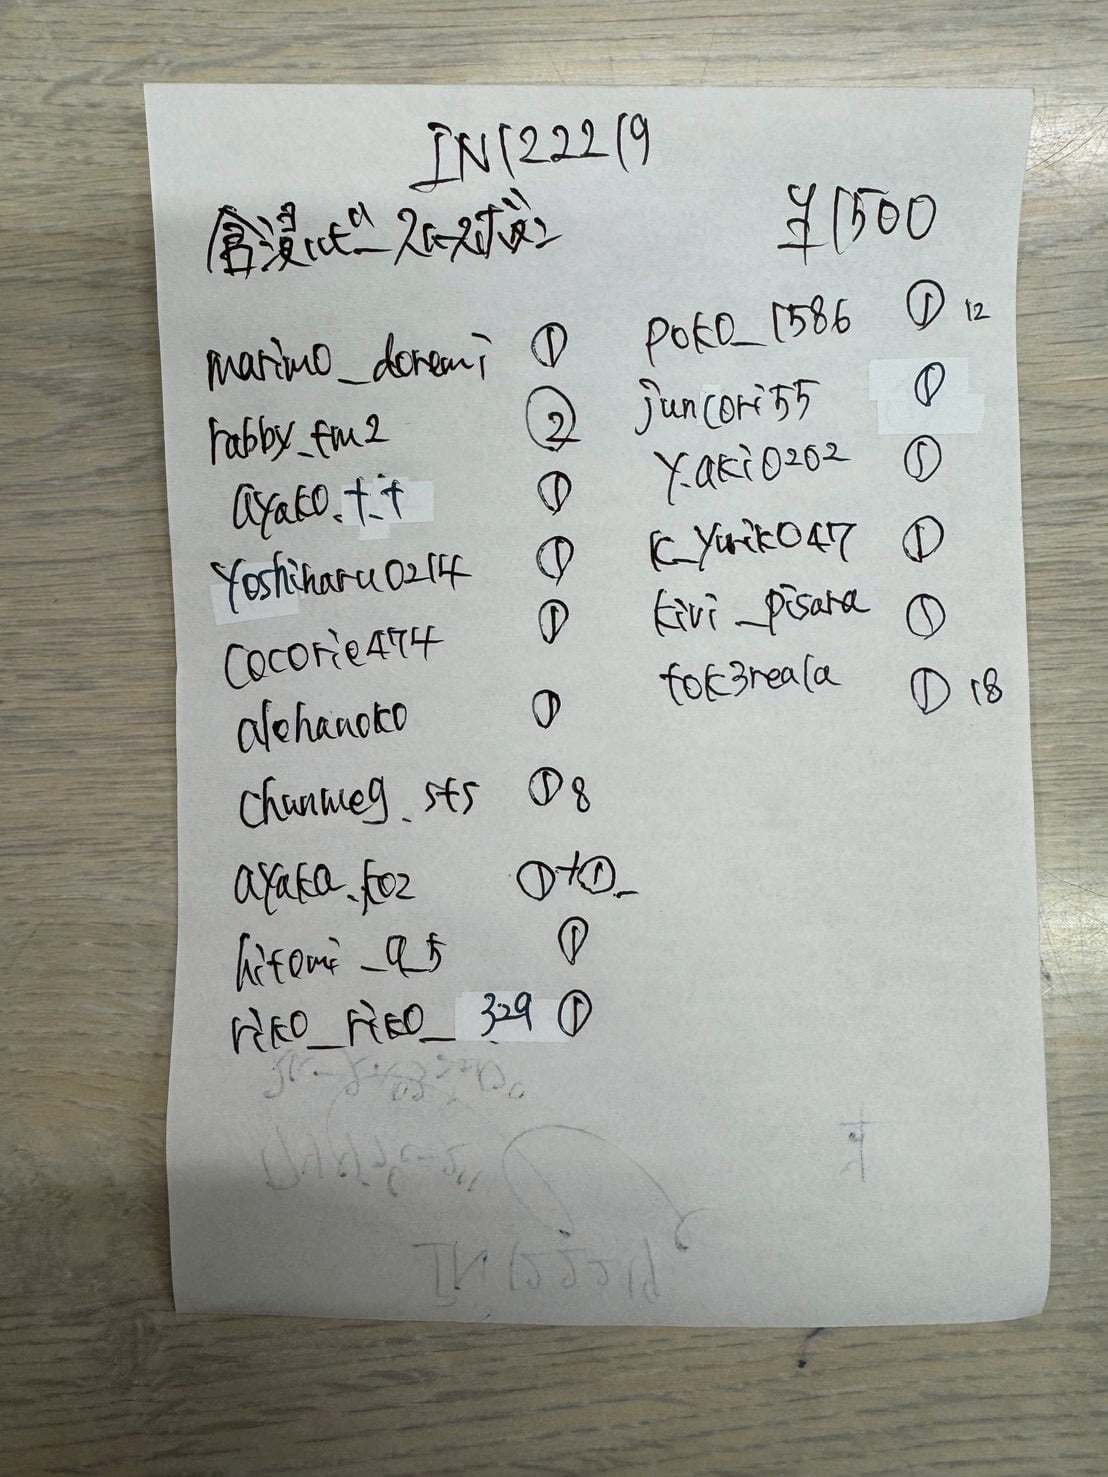 IN122219
¥1500
marimo_doremi ①
rabby_fm2 ②
ayako.t.t ①
yoshiharu0214 ①
cocorie474 ①
alohanoko ①
chanmeg.sts ① 8
ayaka.koz ①+①
hitomi_q_5 ①
riko_riko_329 ①
poko_1586 ① 12
juncori55 ①
y.aki0202 ①
k_yuriko47 ①
kivi_pisara ①
tok3reala ① 18